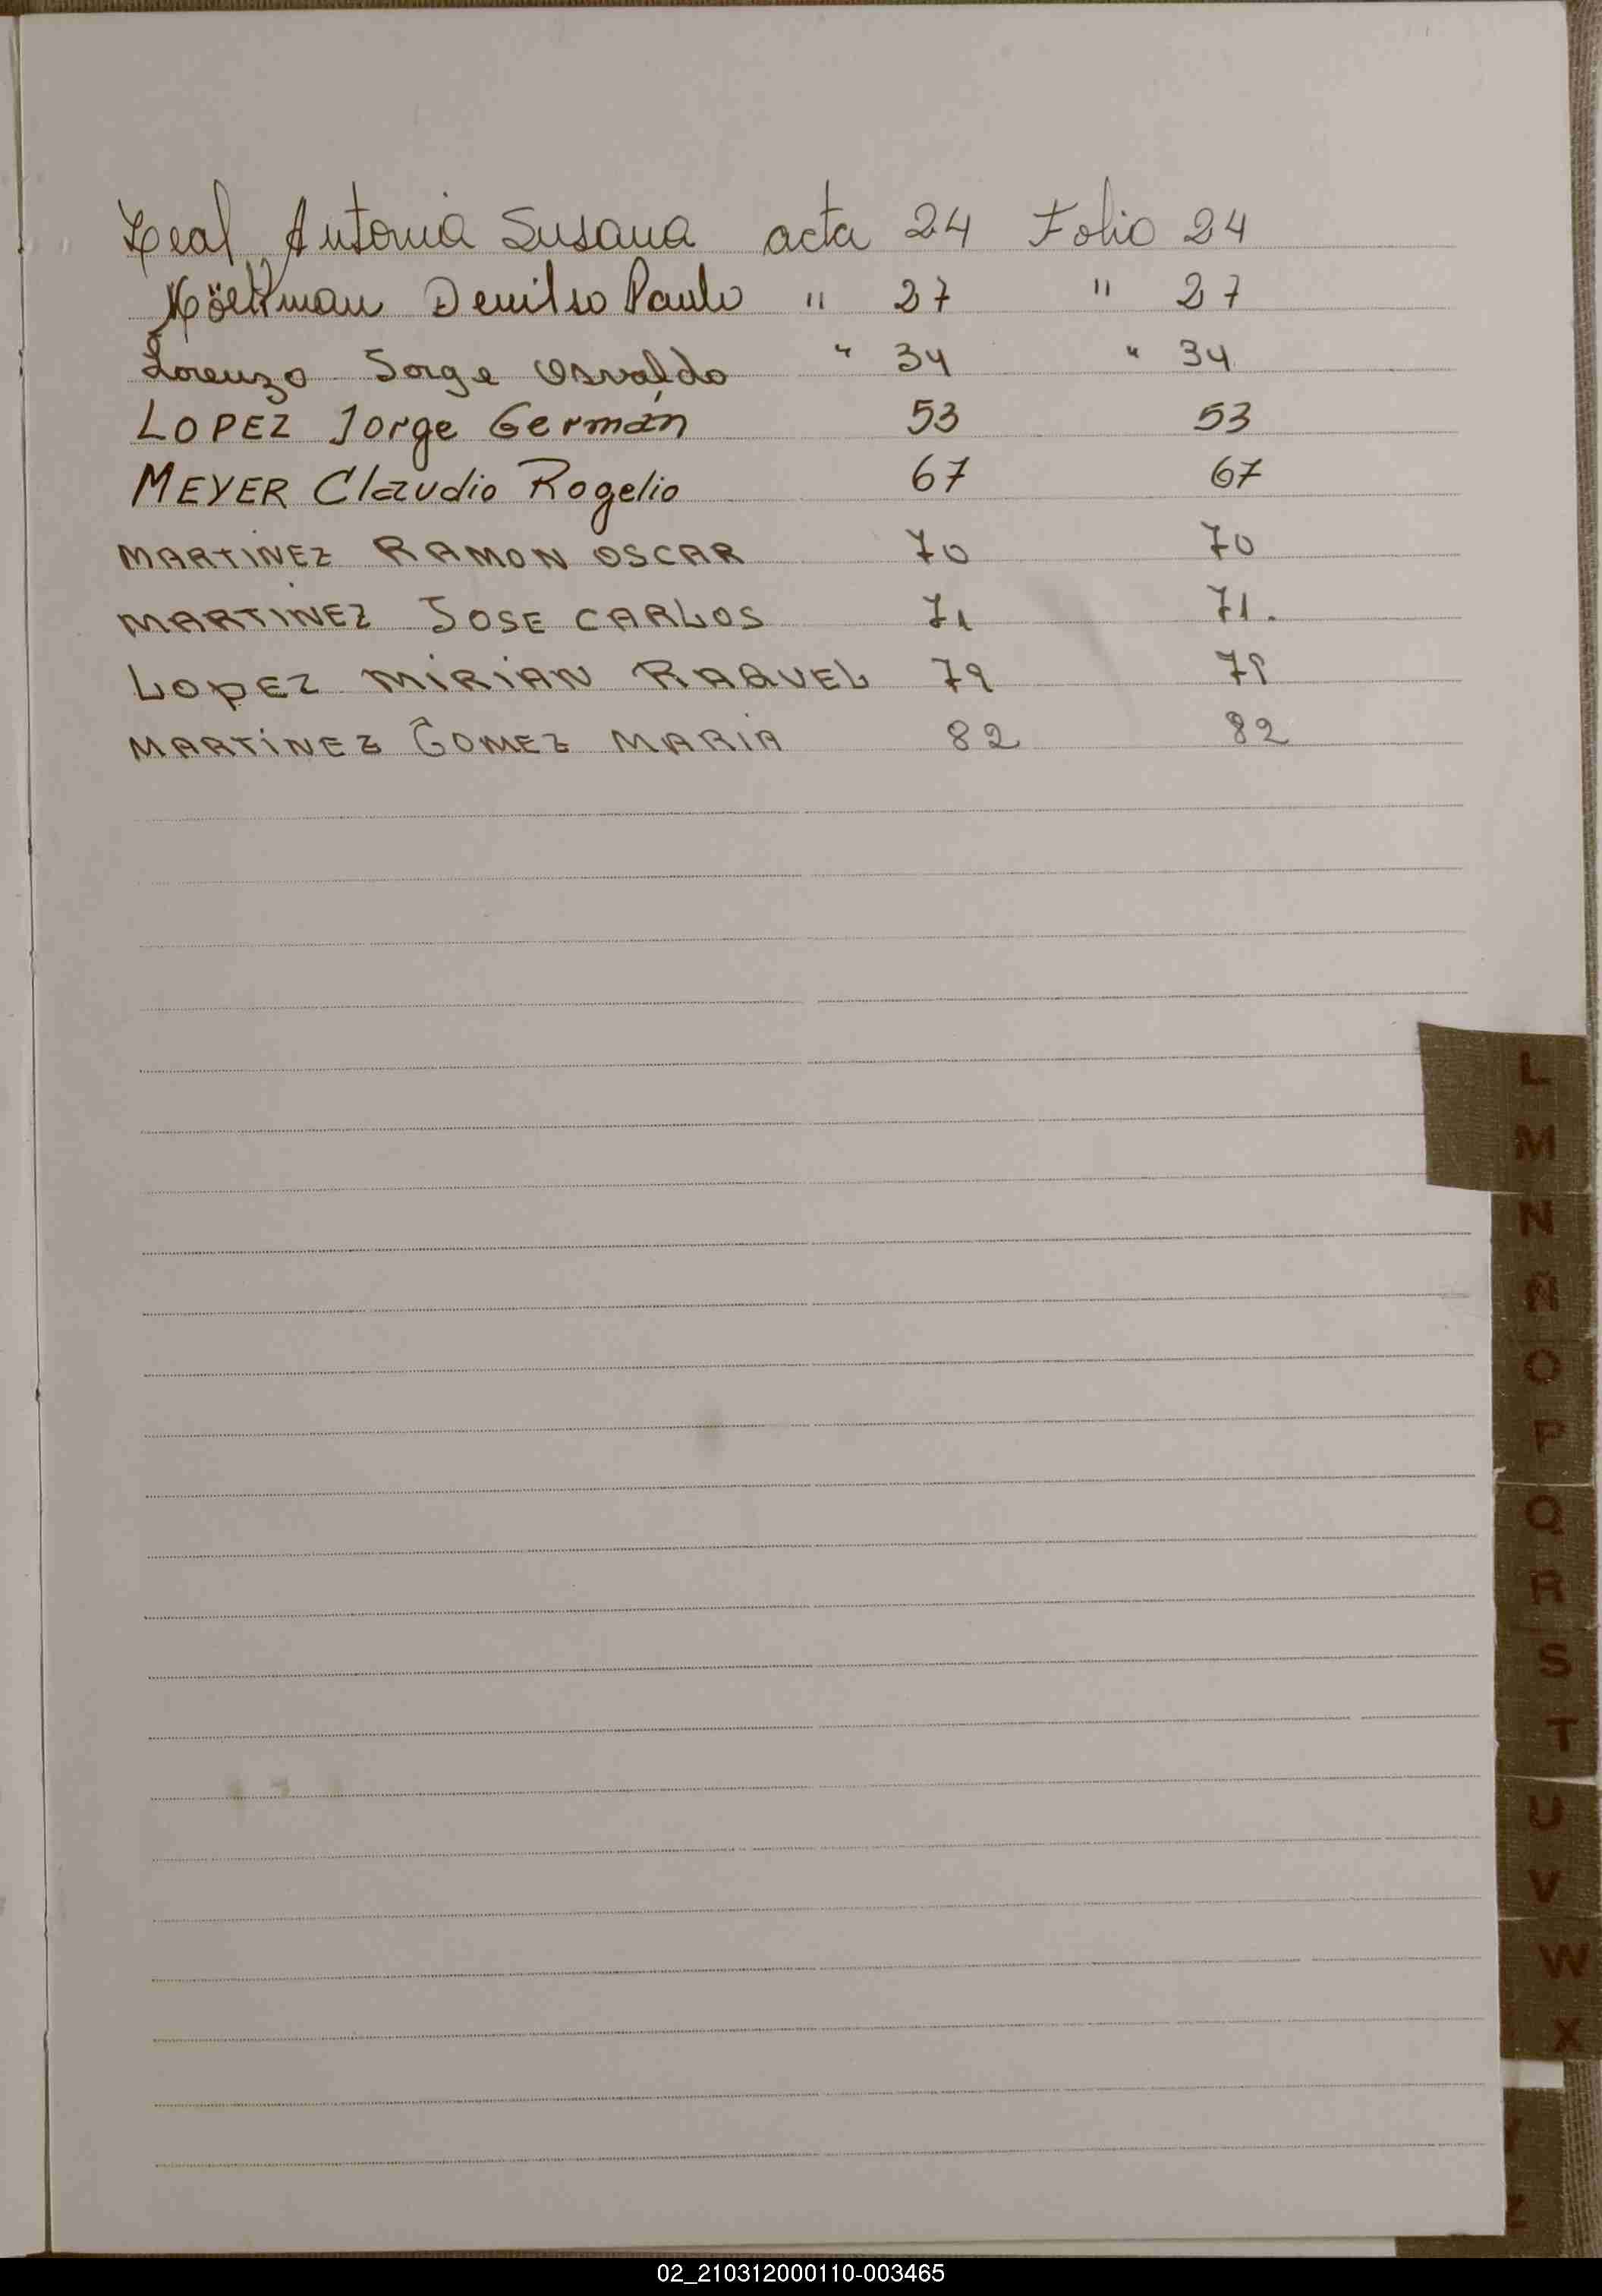 Leal Antonia Susana acta 24 Folio 24
Denilso Paulo " 27 " 27
Lorenzo Jorge Osvaldo " 34 " 34
LOPEZ Jorge Germán 53 53
MEYER Claudio Rogelio 67 67
MARTINEZ RAMON OSCAR 70 70
MARTINEZ JOSE CARLOS 71 71.
LOPEZ MIRIAN RAQUEL 79 79
MARTINEZ GOMEZ MARIA 82 82
L
M
N
Ñ
O
P
Q
R
S
T
U
V
W
X
Z
02_210312000110-003465